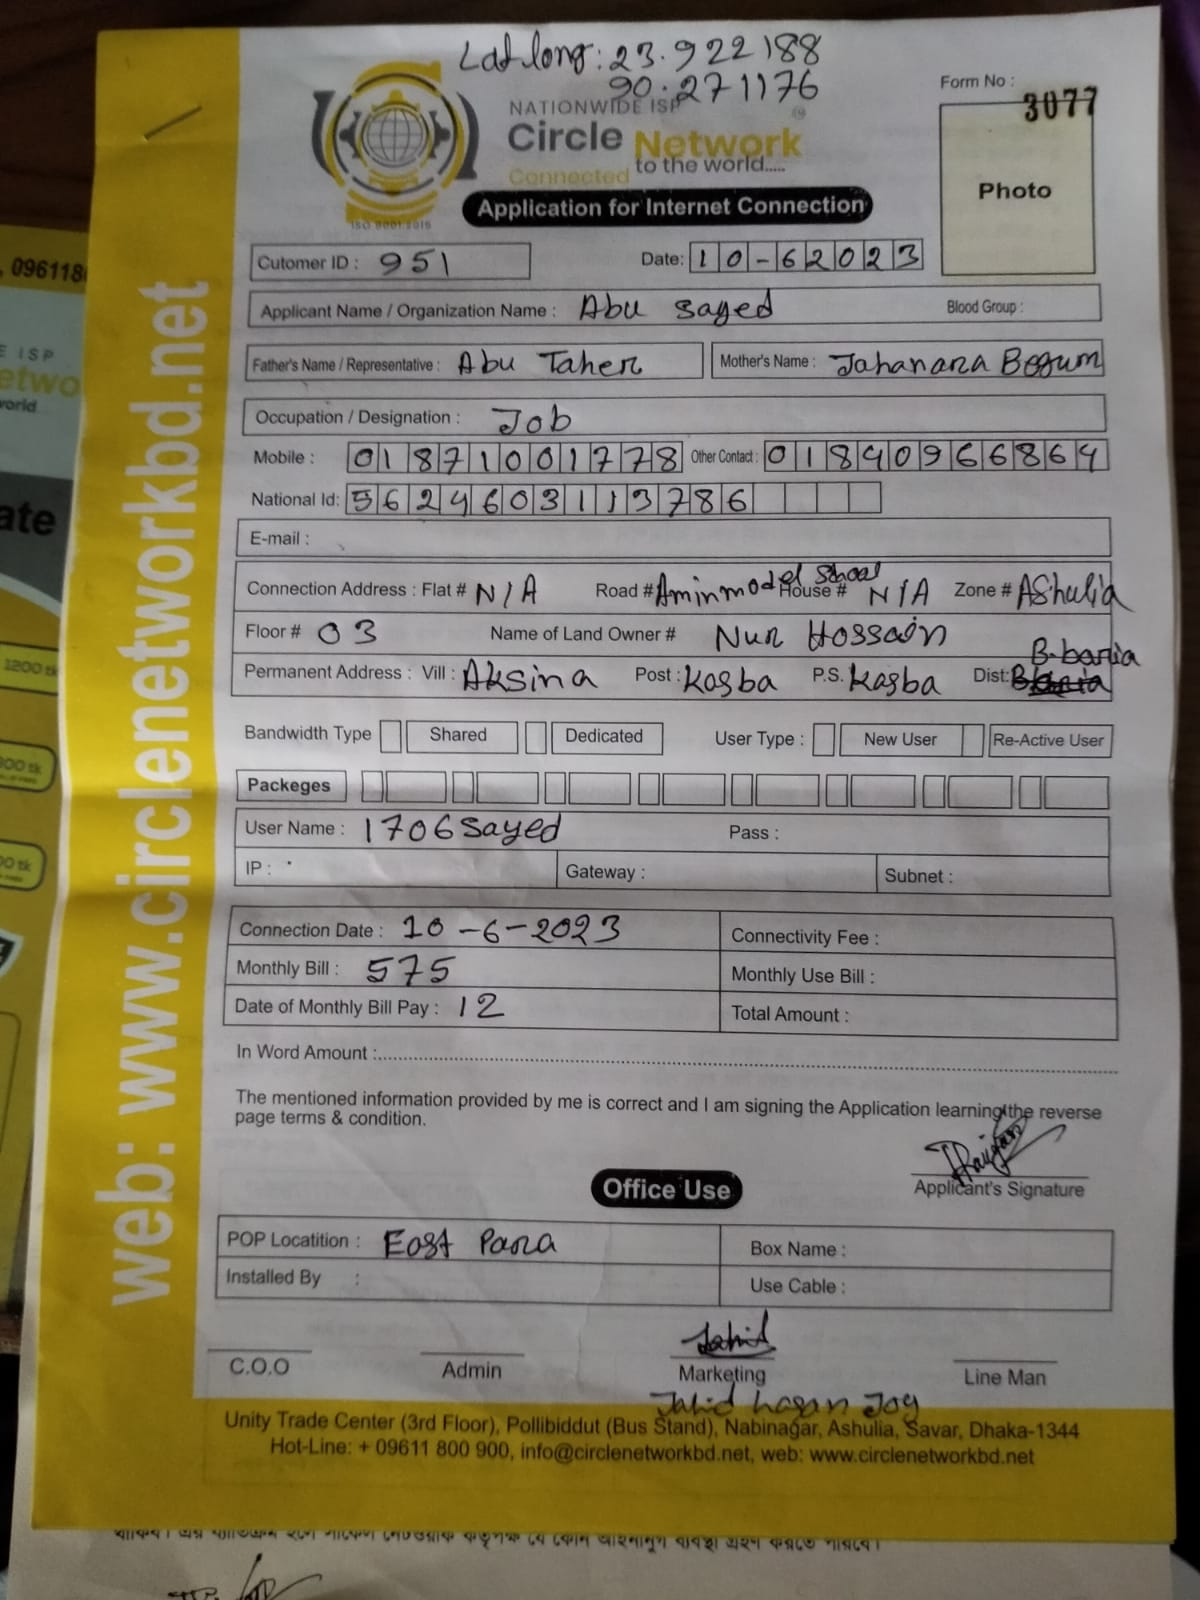 Lat long: 23.922188
90.271176
NATIONWIDE ISP
Circle Network
Connected to the world.....
ISO 9001:2015
Form No :
3077
Photo
Application for Internet Connection
Cutomer ID : 951
Date: 10-62023
Applicant Name / Organization Name : Abu Sayed
Blood Group :
Father's Name / Representative : Abu Taher
Mother's Name : Jahanara Begum
Occupation / Designation : Job
Mobile : 01871001778 Other Contact : 01840966864
National Id: 5624603113786
E-mail :
Connection Address : Flat # N/A Road # Aminmodel School House # N/A Zone # AShulia
Floor # 03 Name of Land Owner # Nur Hossain
Permanent Address : Vill : Aksina Post : Kasba P.S. Kasba Dist: B-baria
Bandwidth Type Shared Dedicated User Type : New User Re-Active User
Packeges
User Name : 1706Sayed Pass :
IP : Gateway : Subnet :
Connection Date : 10-6-2023 Connectivity Fee :
Monthly Bill : 575 Monthly Use Bill :
Date of Monthly Bill Pay : 12 Total Amount :
In Word Amount :
The mentioned information provided by me is correct and I am signing the Application learning the reverse
page terms & condition.
Applicant's Signature
Office Use
POP Locatition : East Para Box Name :
Installed By : Use Cable :
Jahid
C.O.O Admin Marketing Line Man
Jahid hasan Joy
Unity Trade Center (3rd Floor), Pollibiddut (Bus Stand), Nabinagar, Ashulia, Savar, Dhaka-1344
Hot-Line: + 09611 800 900, info@circlenetworkbd.net, web: www.circlenetworkbd.net
web: www.circlenetworkbd.net
, 096118
E ISP
etwo
world
ate
1200 tk